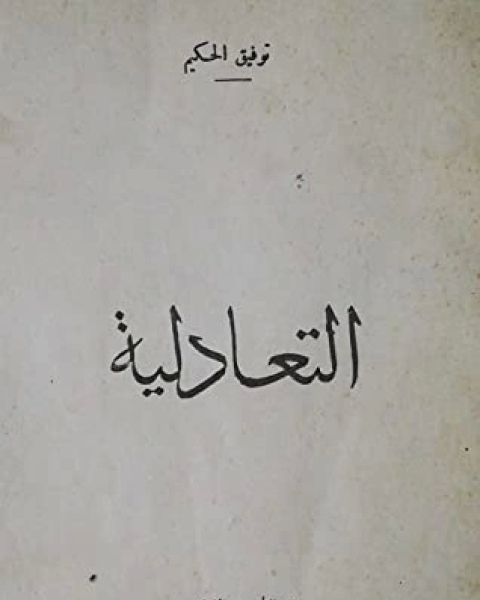 توفيق الحكيم
التعادلية